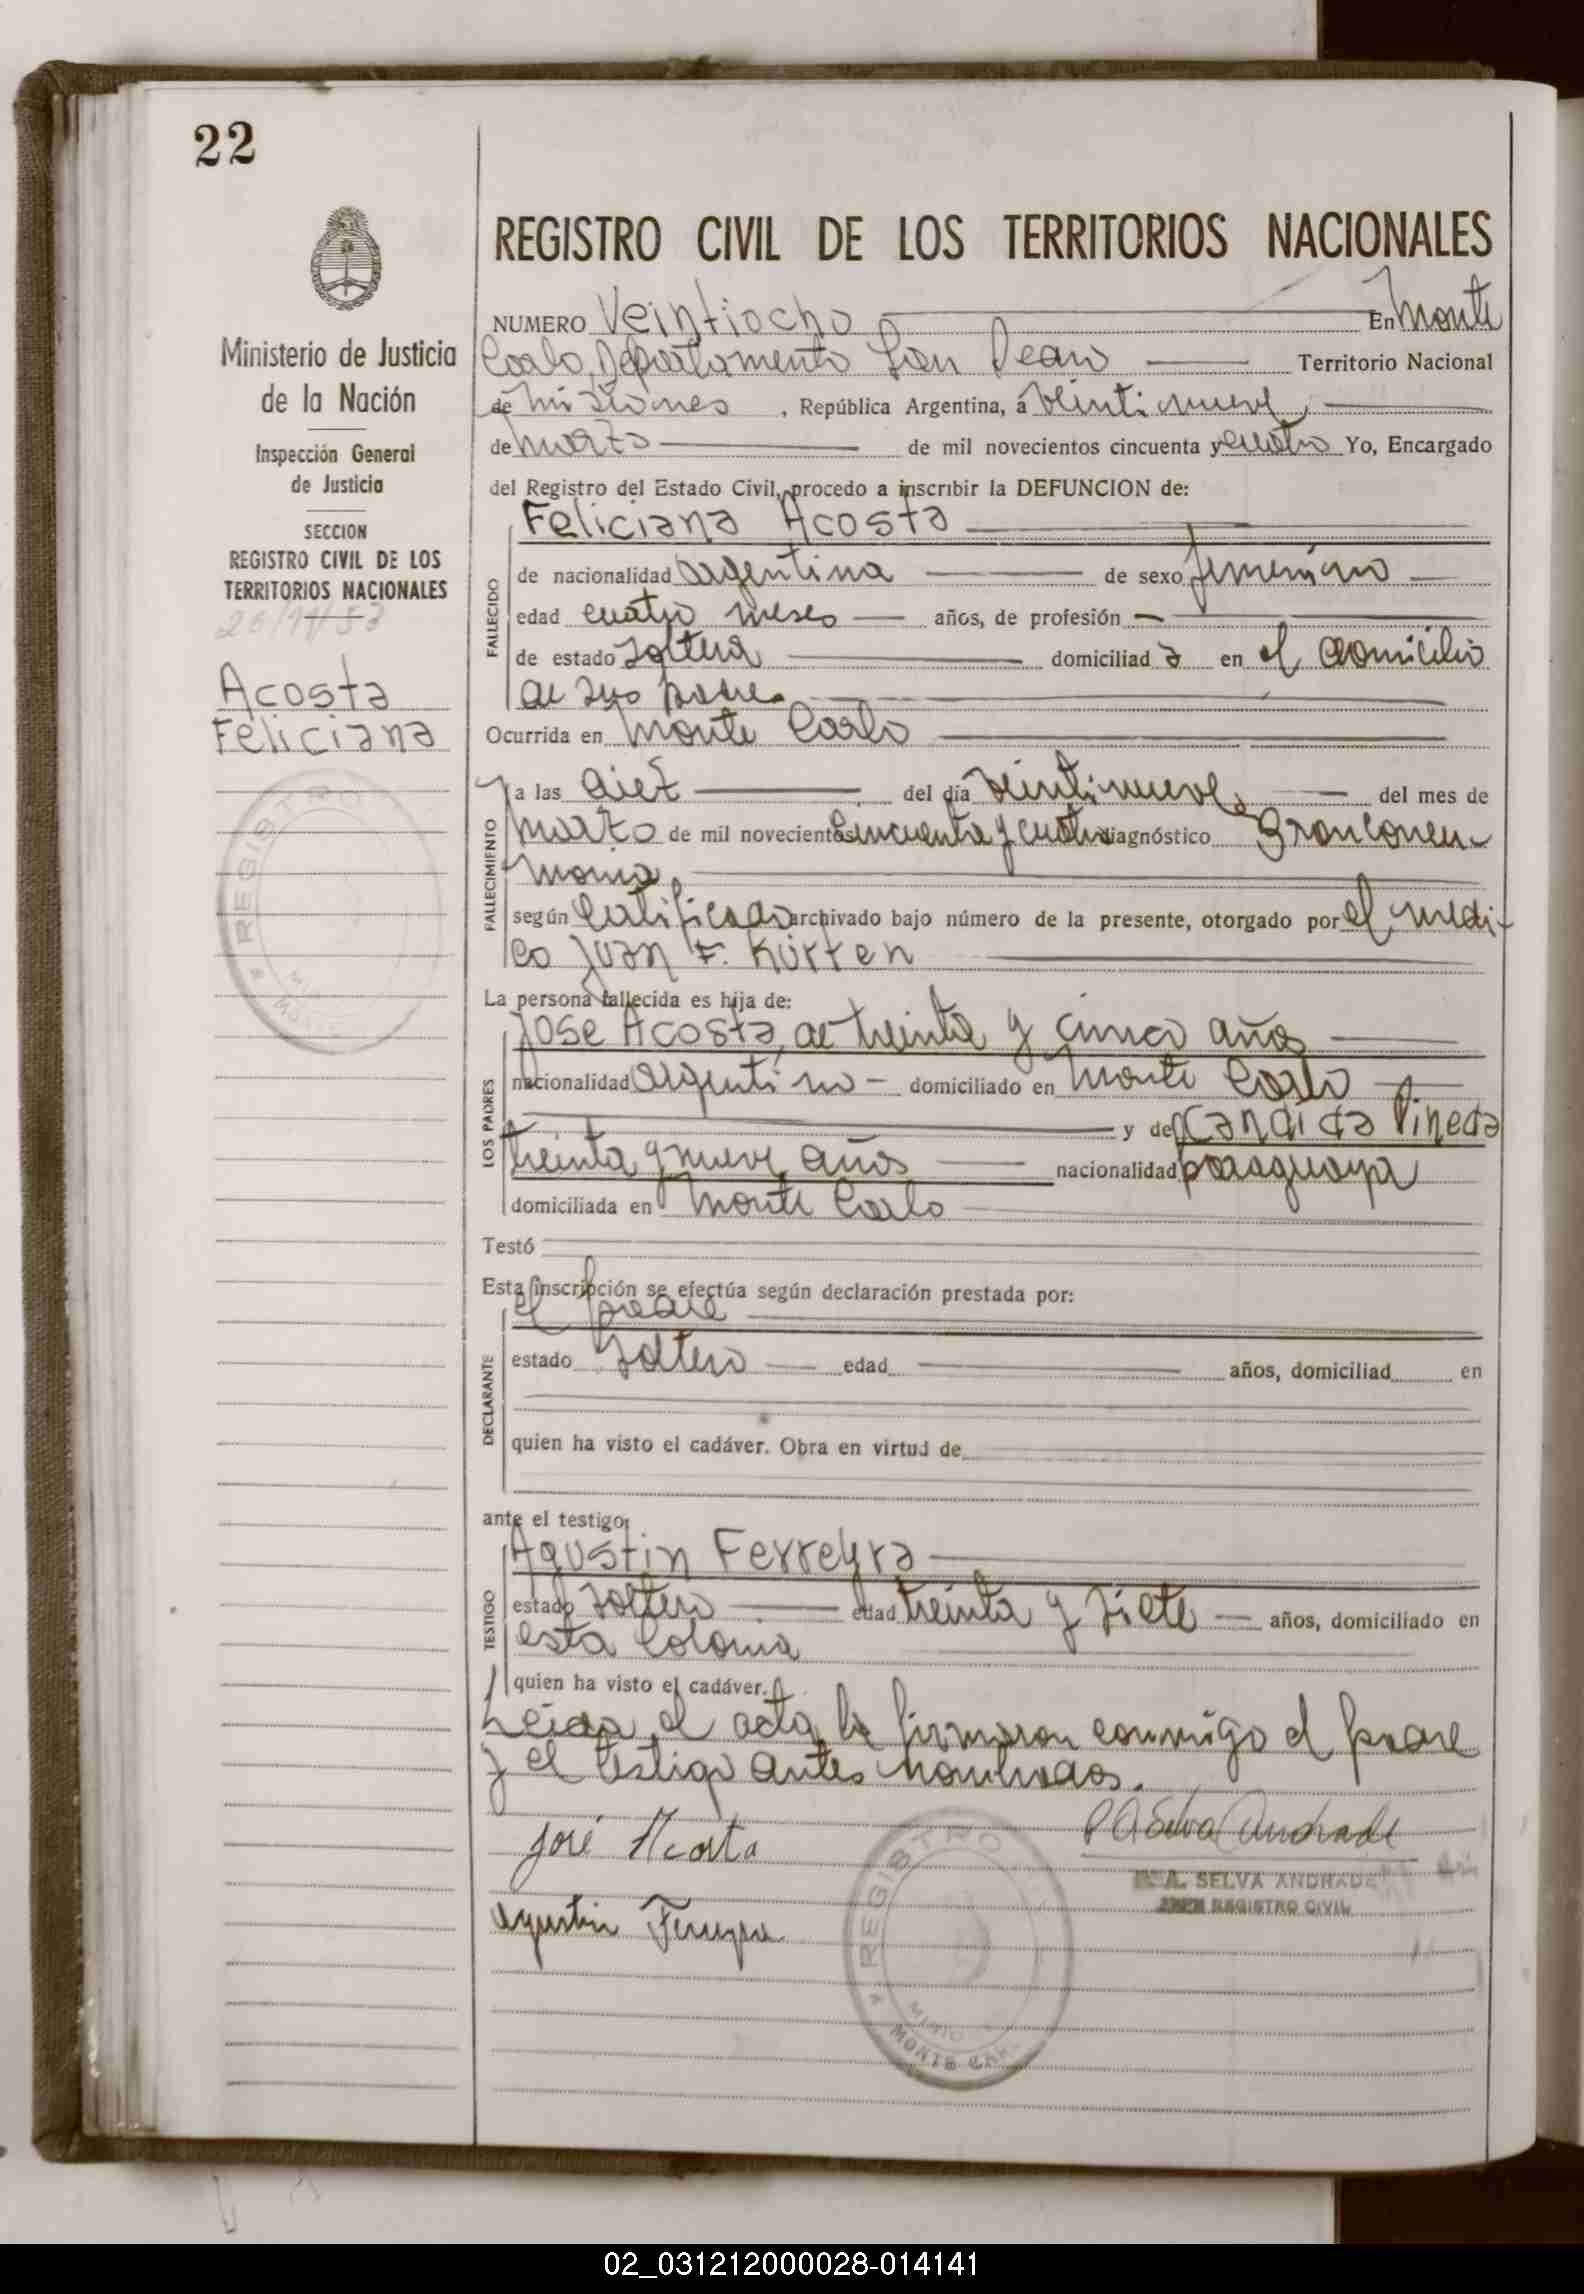 22
Ministerio de Justicia
de la Nación
Inspección General
de Justicia
SECCION
REGISTRO CIVIL DE LOS
TERRITORIOS NACIONALES
26/11/53
Acosta
Feliciana
REGISTRO
MONTE
REGISTRO CIVIL DE LOS TERRITORIOS NACIONALES
NUMERO Veintiocho En Monte
Carlo, Departamento San Pedro Territorio Nacional
de Misiones, República Argentina, a veintinueve
de marzo de mil novecientos cincuenta y cuatro Yo, Encargado
del Registro del Estado Civil, procedo a inscribir la DEFUNCION de:
Feliciana Acosta
FALLECIDO
de nacionalidad argentina de sexo femenino
edad cuatro meses años, de profesión
de estado soltera domiciliada en el domicilio
de sus padres
Ocurrida en Monte Carlo
FALLECIMIENTO
a las diez del día veintinueve del mes de
marzo de mil novecientos cincuenta y cuatro diagnóstico Bronconeu-
monia
según certificado archivado bajo número de la presente, otorgado por el medi-
co Juan F. Kürten
La persona fallecida es hija de:
LOS PADRES
Jose Acosta, de treinta y cinco años
nacionalidad argentino domiciliado en Monte Carlo
y de Candida Pineda
treinta y nueve años nacionalidad paraguaya
domiciliada en Monte Carlo
Testó
Esta inscripción se efectúa según declaración prestada por:
DECLARANTE
el padre
estado soltero edad años, domiciliad en
quien ha visto el cadáver. Obra en virtud de
ante el testigo
TESTIGO
Agustin Ferreyra
estado soltero edad treinta y siete años, domiciliado en
esta Colonia
quien ha visto el cadáver.
Leida el acta la firmaron conmigo el padre
y el testigo antes nombrados.
José Acosta
P A Selva Andrade
A. SELVA ANDRADE
JEFE REGISTRO CIVIL
Agustin Ferreyra
REGISTRO
MONTE CAR
02_031212000028-014141